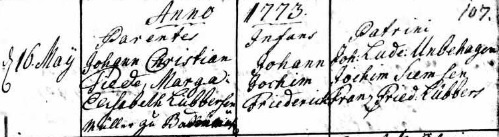 Anno 1773. 107.
Parentes Infans Patrini
16. Maÿ Johann Christian Johann Joh: Lude: Unbehagen
Marga: Jochim Jochim Siemsen
Elisabeth Lübbersen Friederich Franz Fried. Lübbers
Müller zu